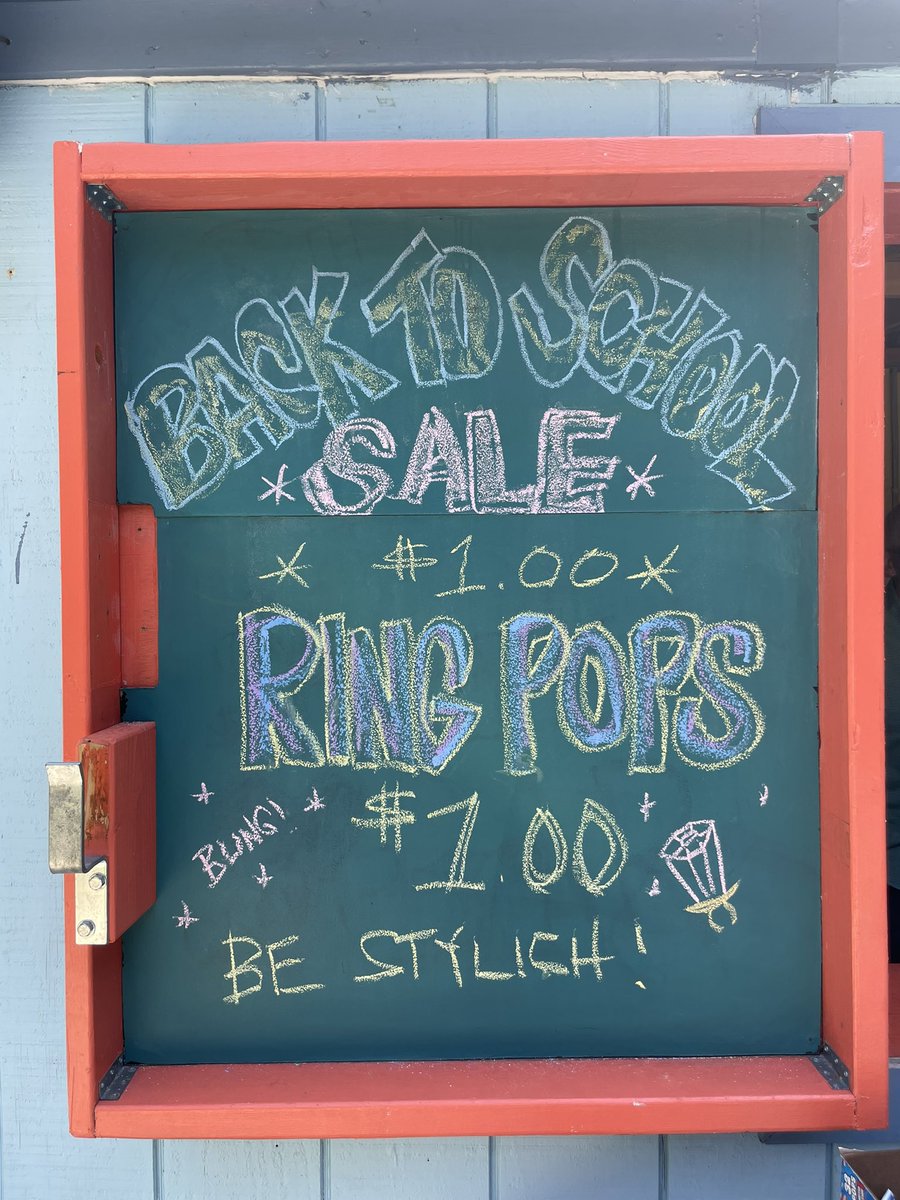 BACK TO SCHOOL
* SALE *
* $1.00 *
RING POPS
$1.00
BLING!
BE STYLISH!